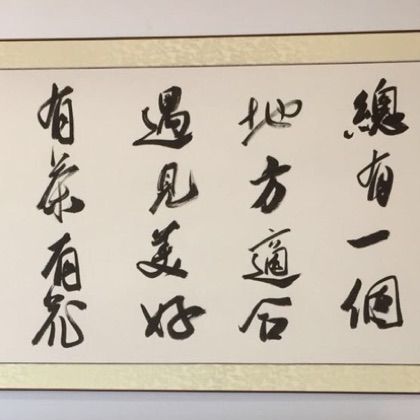 總有一個
地方適合
遇見美好
有茶有花